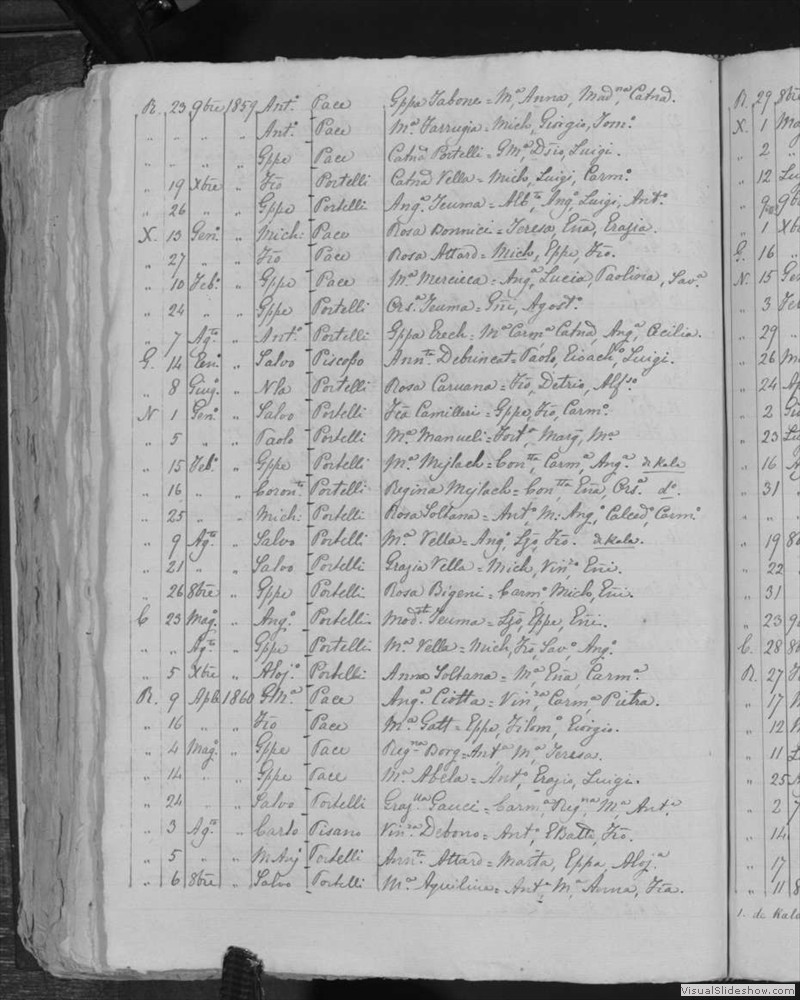 R. 23 9bre 1859 Antº Pace Gppa Tabone = Mª Anna, Madna, Catnd.
" " " " Antº Pace Mª Farrugia = Mich, Giorgio, Tomº
" " " " Gppe Pace Catnd Portelli = GMª, Dsio, Luigi.
" 19 Xbre " Fro Portelli Catnd Vella = Mich, Luigi, Carmº
" 26 " " Gppe Portelli Angª Teuma = Albto, Angº Luigi, Antº
X. 13 Genº " Mich: Pace Rosa Bonnici = Teresa, Erazia.
" 27 " " Fro Pace Rosa Attard = Mich, Eppe, Fro.
" 10 Febº " Gppe Pace Mª Mercieca = Angª Lucia, Paolina, Savª
" 24 " " Gppe Portelli Orsª Teuma = Agostº
" 7 Agto " Antº Portelli Gppa Erech = Mª Carmª Catnd, Angª Cecilia.
G. 14 Genº " Salvo Piscopo Annta Debrincat = Paolo, Luigi.
" 8 Giugº " Nla Portelli Rosa Caruana = Fro, Alfso
N 1 Genº " Salvo Portelli Fca Camilleri = Gppe, Fro, Carmº
" 5 " " Paolo Portelli Mª Manueli = Fortª Mª
" 15 Febº " Gppe Portelli Mª Mejlach = Contta, Carmª, Angª di Kala
" 16 " " Portelli Regina Mejlach = Contta Orsª dº.
" 25 " " Mich: Portelli Rosa Soltana = Antº M: Angº, Calcedº, Carmº
" 9 Agto " Salvo Portelli Mª Vella = Angº Fro. di Kala.
" 21 " " Salvo Portelli Grazia Vella = Mich, Vinzº Eñi.
" 26 8bre " Gppe Portelli Rosa Bigeni = Carmº Mich, Eñi.
C 23 Magº " Angº Portelli Modta Teuma = Eppe, Eñi.
" " Agto " Gppe Portelli Mª Vella = Mich, Fro, Savº Angº
" 5 Xbre " Alojº Portelli Anna Soltana = Mª Carmª
R. 9 Aple 1860 GMª Pace Angª Ciotta = Vinza, Carmª Pietra.
" 16 " " Fro Pace Mª Gatt = Eppe, Filomº, Giorgio.
" 4 Magº " Gppe Pace Regna Borg = Antª Mª Teresa.
" 14 " " Gppe Pace Mª Abela = Antº, Erazio, Luigi.
" 24 " " Salvo Portelli Gauci = Carmª, Regna, Mª, Antª
" 3 Agto " Carlo Pisano Vinza Debono = Antº, Fro.
" 5 " " M Anj Portelli Annta Attard = Marta, Eppa, Alojª
" 6 8bre " Salvo Portelli Mª Aquilina = Antª Mª, Anna, Fca.
R. 29 8bre
X. 1 Ma
" 2 "
" 12 Lu
" 9
" 1 Xbr
G. 16 "
N. 15 Gen
" 3 Fe
" 29 "
" 26 Ma
" 24 Ap
" 2
" 23
" 16
" 31 "
" 19
" 22
" 31
" 23
C. 28
R. 27
" 17
" 12
" 11
" 25
" 2
" 14
" 17
" 11 8
1. de Kala
VisualSlideshow.com